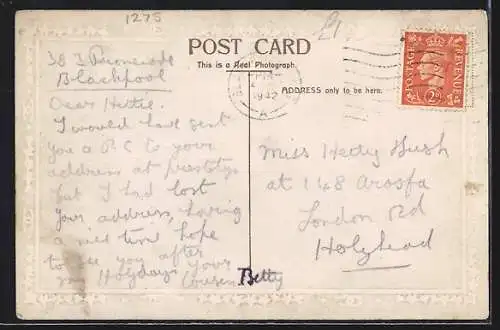 1275
£1
POST CARD
This is a Real Photograph.
ADDRESS only to be here.
1942
POSTAGE
REVENUE
2D
Promenade
Blackpool
Dear Hettie.
I would have sent
you a P C to your
address at Prestatyn
but I had lost
your address, having
a nice time hope
to see you after
my Holydays your
Cousin Betty
Miss Hedy Hush
at 148 Arosfa
London Rd
Holyhead